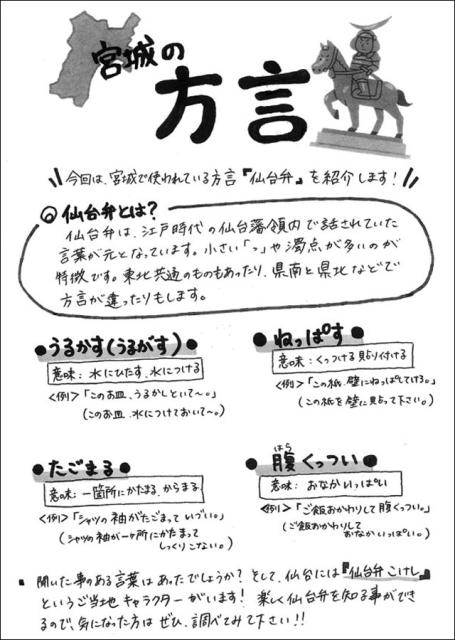 宮城の
方言
今回は、宮城で使われている方言『仙台弁』を紹介します！
◎仙台弁とは？
仙台弁は、江戸時代の仙台藩領内で話されていた
言葉が元となっています。小さい「っ」や濁点が多いのが
特徴です。東北共通のものもあったり、県南と県北などで
方言が違ったりもします。
●うるかす(うるがす)●
意味：水にひたす、水につける
<例>「このお皿、うるかしといて〜。」
(このお皿、水につけておいて〜。)
●ねっぱす●
意味：くっつける 貼り付ける
<例>「この紙、壁にねっぱしてけろ。」
(この紙を壁に貼って下さい。)
●たごまる●
意味：一箇所にかたまる、からまる
<例>「シャツの袖がたごまって いづい。」
(シャツの袖が一ヶ所にかたまって
しっくりこない。)
はら
●腹くっつい●
意味：おなかいっぱい
<例>「ご飯おかわりして腹くっつい。」
(ご飯おかわりして
おなかいっぱい。)
▪ 聞いた事のある言葉はあったでしょうか？そして、仙台には『仙台弁こけし』
というご当地キャラクターがいます！楽しく仙台弁を知る事ができ
るので、気になった方はぜひ、調べてみて下さい!!